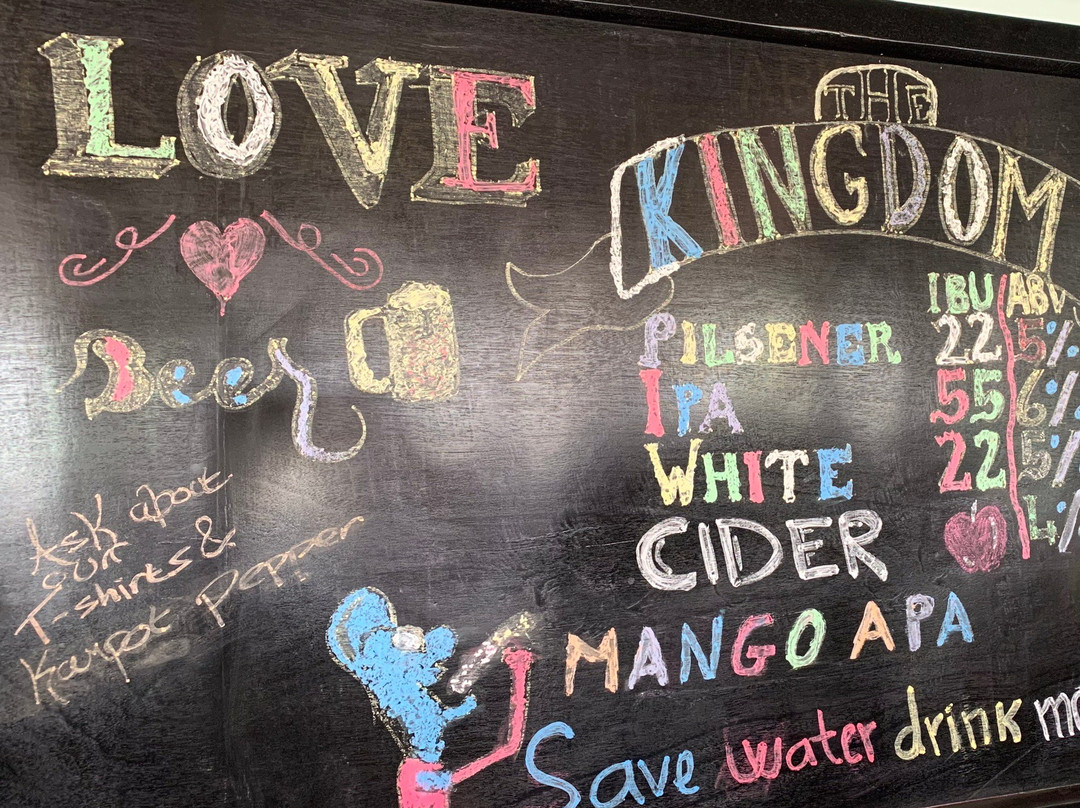 LOVE
Beer
Ask about
our
T-shirts &
Kampot pepper
THE
KINGDOM
IBU ABV
PILSENER 22 5%
IPA 55 6%
WHITE 22 5%
CIDER 4%
MANGO APA
Save water drink